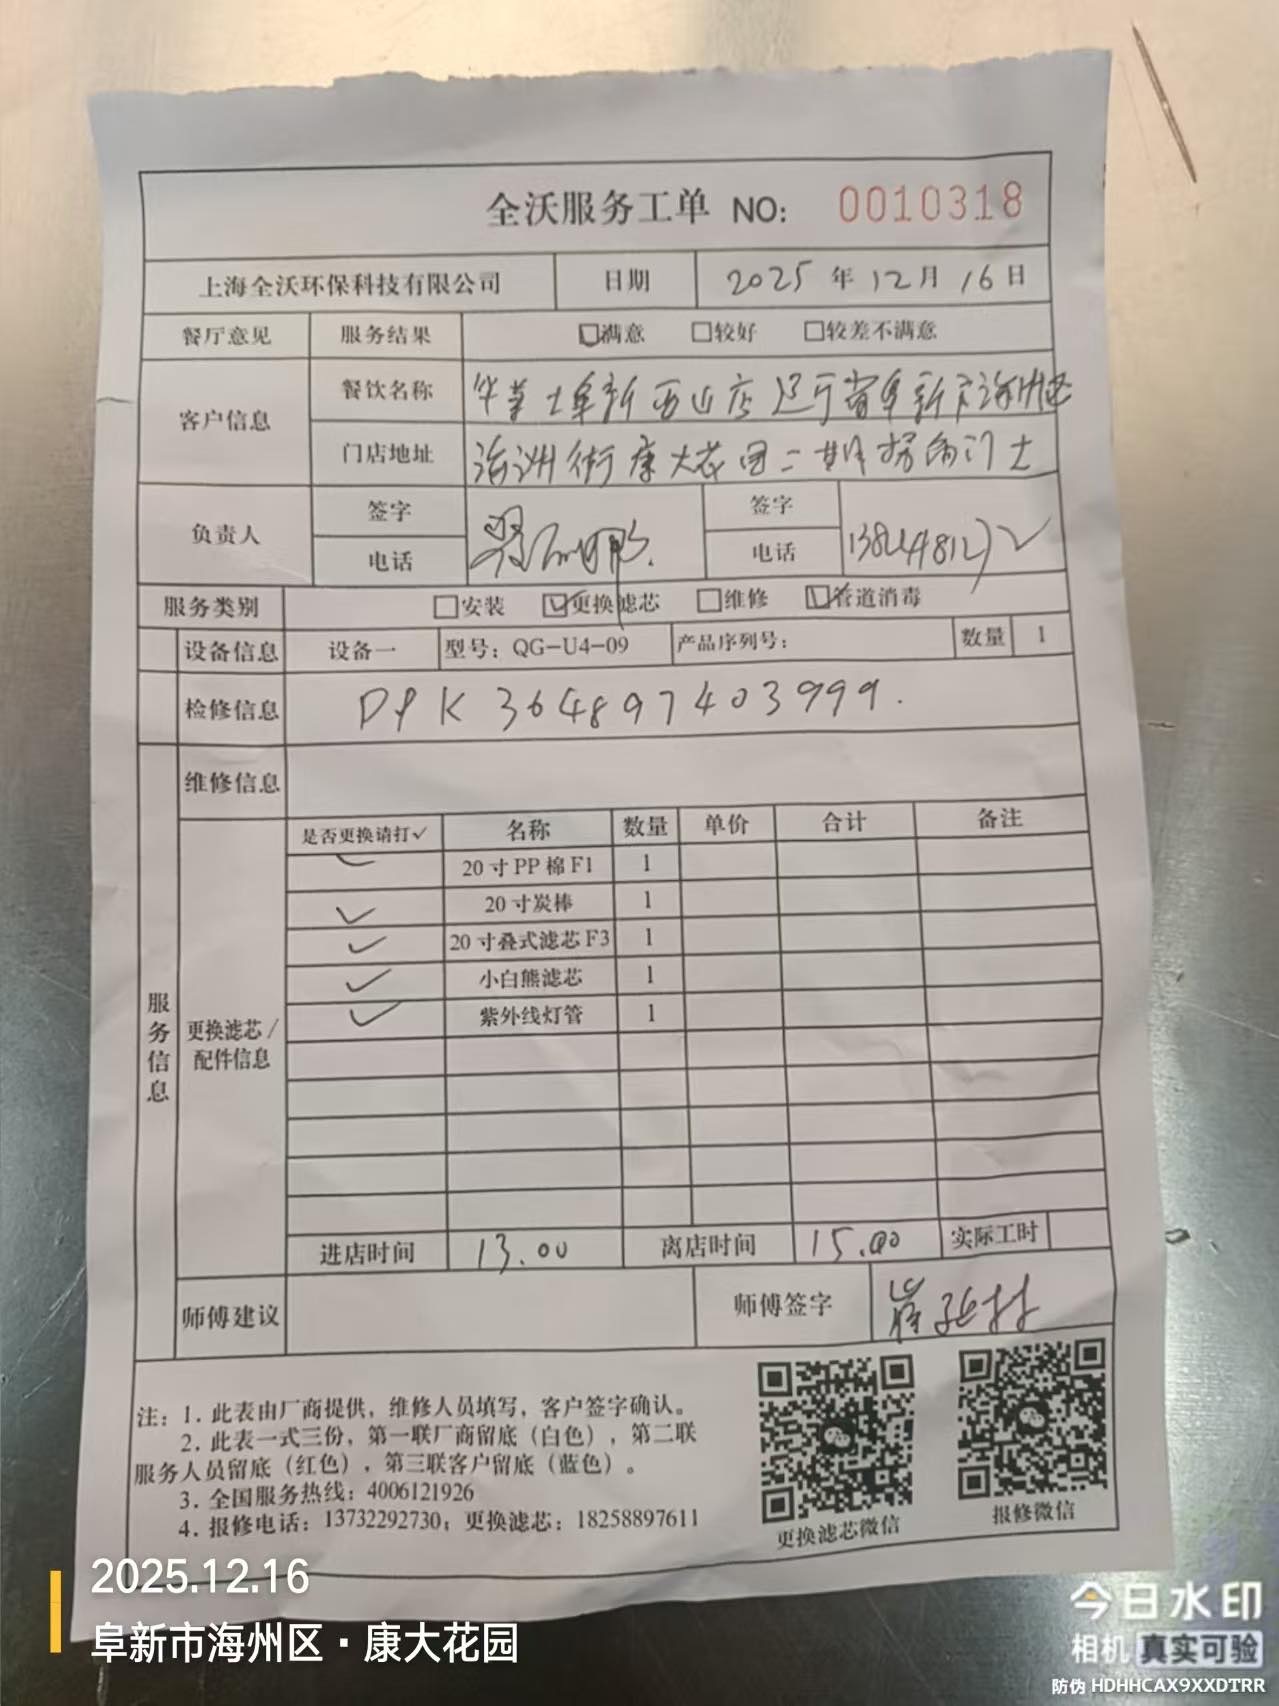 全沃服务工单 NO: 0010318
上海全沃环保科技有限公司 日期 2025 年 12 月 16 日
餐厅意见 服务结果 满意 较好 较差不满意
客户信息 餐饮名称 华莱士阜新西山店 辽宁省阜新市海州区
门店地址 海州街康大花园二期拐角门士
负责人 签字 签字
电话 电话
服务类别 安装 更换滤芯 维修 管道消毒
设备信息 设备一 型号: QG-U4-09 产品序列号: 数量 1
检修信息 DPK 364897403999.
维修信息
是否更换请打✓ 名称 数量 单价 合计 备注
✓ 20寸PP棉F1 1
✓ 20寸炭棒 1
✓ 20寸叠式滤芯F3 1
✓ 小白熊滤芯 1
✓ 紫外线灯管 1
服务信息
更换滤芯/
配件信息
进店时间 13.00 离店时间 15.00 实际工时
师傅建议 师傅签字
注: 1. 此表由厂商提供, 维修人员填写, 客户签字确认。
2. 此表一式三份, 第一联厂商留底(白色), 第二联
服务人员留底(红色), 第三联客户留底(蓝色)。
3. 全国服务热线: 4006121926
4. 报修电话: 13732292730; 更换滤芯: 18258897611
更换滤芯微信 报修微信
2025.12.16
阜新市海州区·康大花园
今日水印
相机 真实可验
防伪 HDHHCAX9XXDTRR